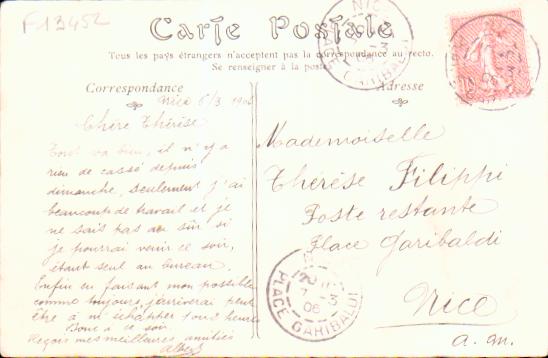 F13452
Carte Postale
Tous les pays étrangers n'acceptent pas la correspondance au recto.
Se renseigner à la poste
Correspondance
Adresse
Nice 6/3 1906
Chère Thérèse
Tout va bien, il n'y a
rien de cassé depuis
dimanche, seulement j'ai
beaucoup de travail et je
ne sais pas au sûr si
je pourrai venir ce soir,
étant seul au bureau.
Enfin en faisant mon possible
comme toujours, j'arriverai peut
être à m'échapper
Donc à ce soir
Reçois mes meilleures amitiés
Albert
Mademoiselle
Thérèse Filippi
Poste restante
Place Garibaldi
Nice
a. m.
NICE
PLACE GARIBALDI
7-3
06
PLACE GARIBALDI